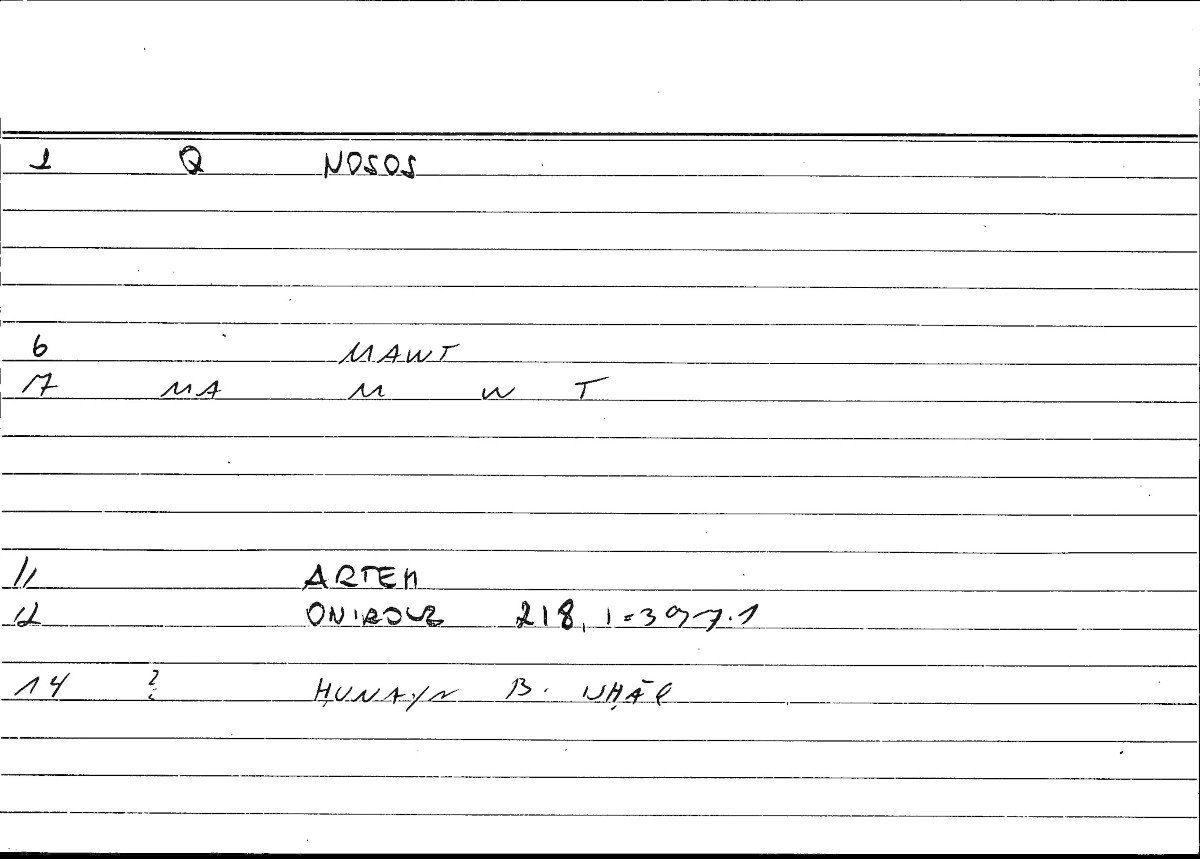 1 Q NOSOS
6 MAWT
7 MA M W T
11 ARTEM
12 ONIROCR 218, 1=397.1
14 ? ḤUNAYN B. ISḤĀQ